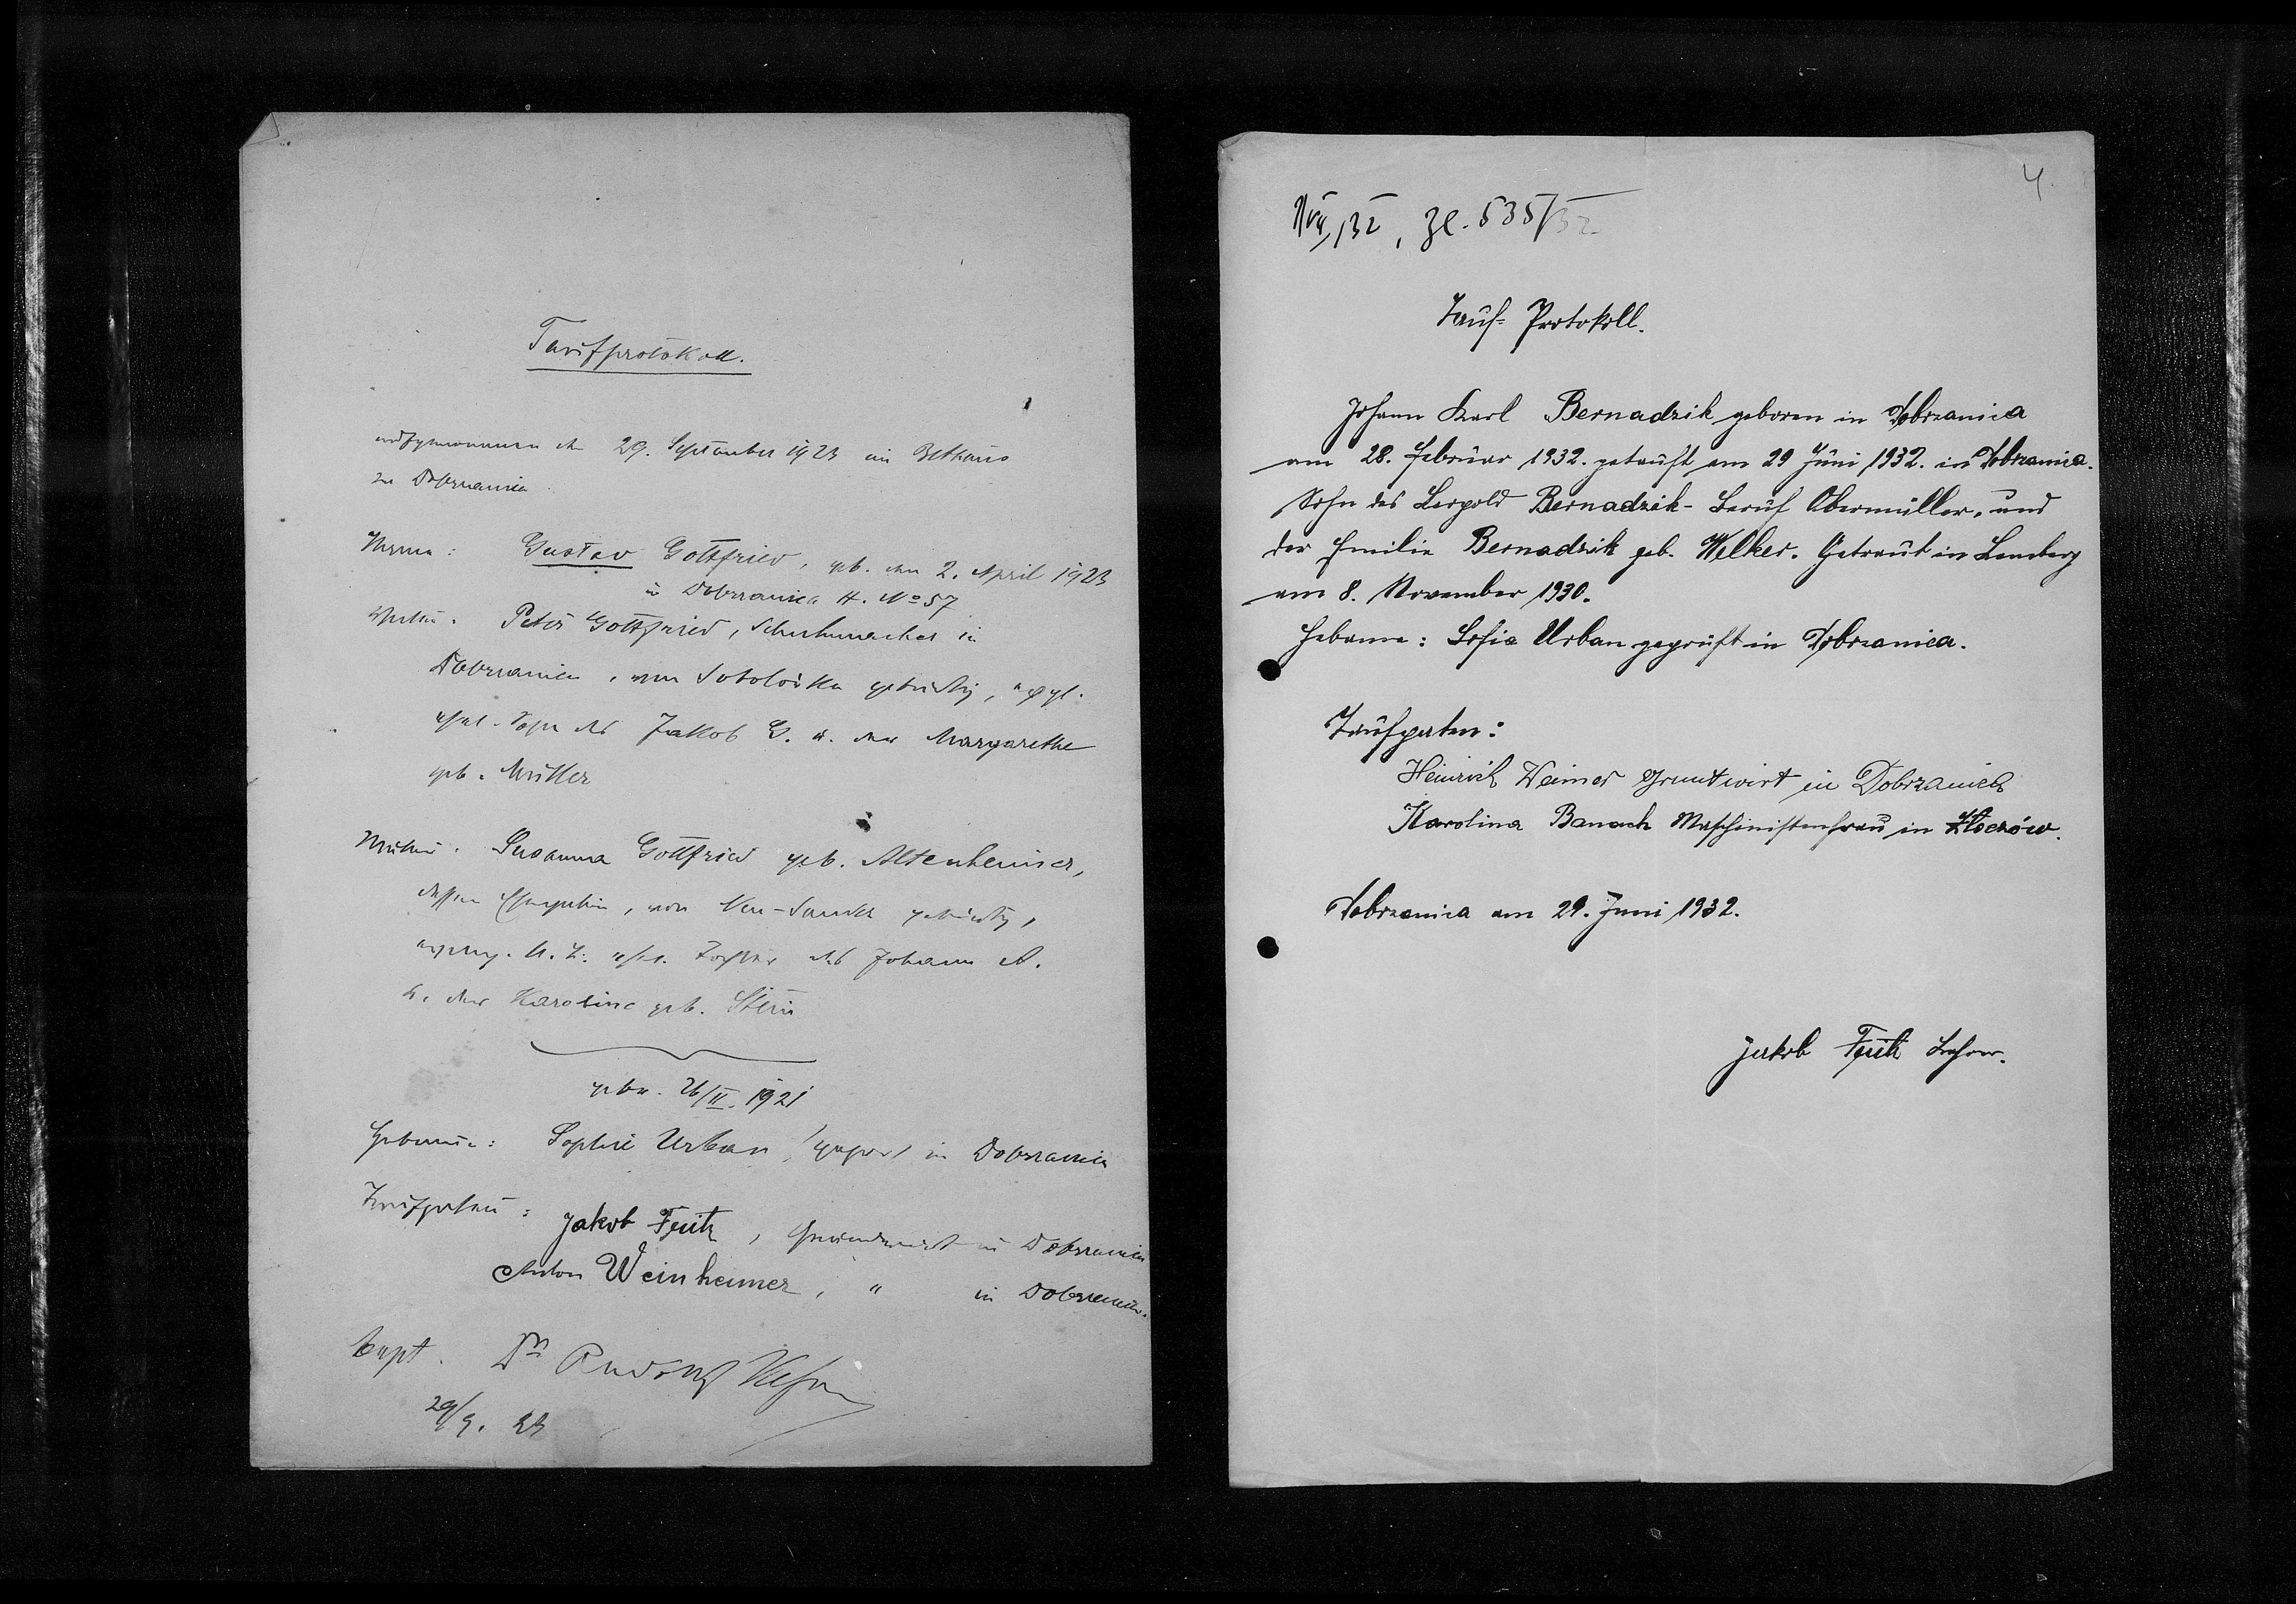 Taufprotokoll.
aufgenommen den 29. September 1923 im Bethaus
zu Dobrzanica
Name: Gustav Gottfried, geb. den 2. April 1923
in Dobrzanica H. No 57
Vater. Peter Gottfried, Schuhmacher in
Dobrzanica, von Sokolówka gebürtig,
ehel. Sohn des Jakob G. u. der Margarethe
geb. Müller
Mutter. Susanna Gottfried geb. Altenheimer,
dessen Ehegattin, von Neu-Sandez gebürtig,
ehel. Tochter des Johann A.
u. der Karoline geb. Stein
getr. 26/II. 1921
Hebamme: Sophie Urban, gepr. in Dobrzanica
Taufpaten: Jakob Fritz, Grundwirt in Dobrzanica
Anton Weinheimer, " in Dobrzanica.
bapt. Dr Rudolf
29/9. 23
4.
Zl. 535/32
Tauf-Protokoll.
Johann Karl Bernadzik geboren in Dobrzanica
am 28. Februar 1932. getauft am 29 Juni 1932. in Dobrzanica.
Sohn des Leopold Bernadzik - Beruf Obermüller, und
der Emilie Bernadzik geb. Welker. Getraut in Lemberg
am 8. November 1930.
Hebame: Sofie Urban geprüft in Dobrzanica.
Taufpaten:
Heinrich Weimer Gruntwirt in Dobrzanica
Karolina Banach Maschinistenfrau in Złoczów.
Dobrzanica am 29. Juni 1932.
Jakob Fritz Lehrer.